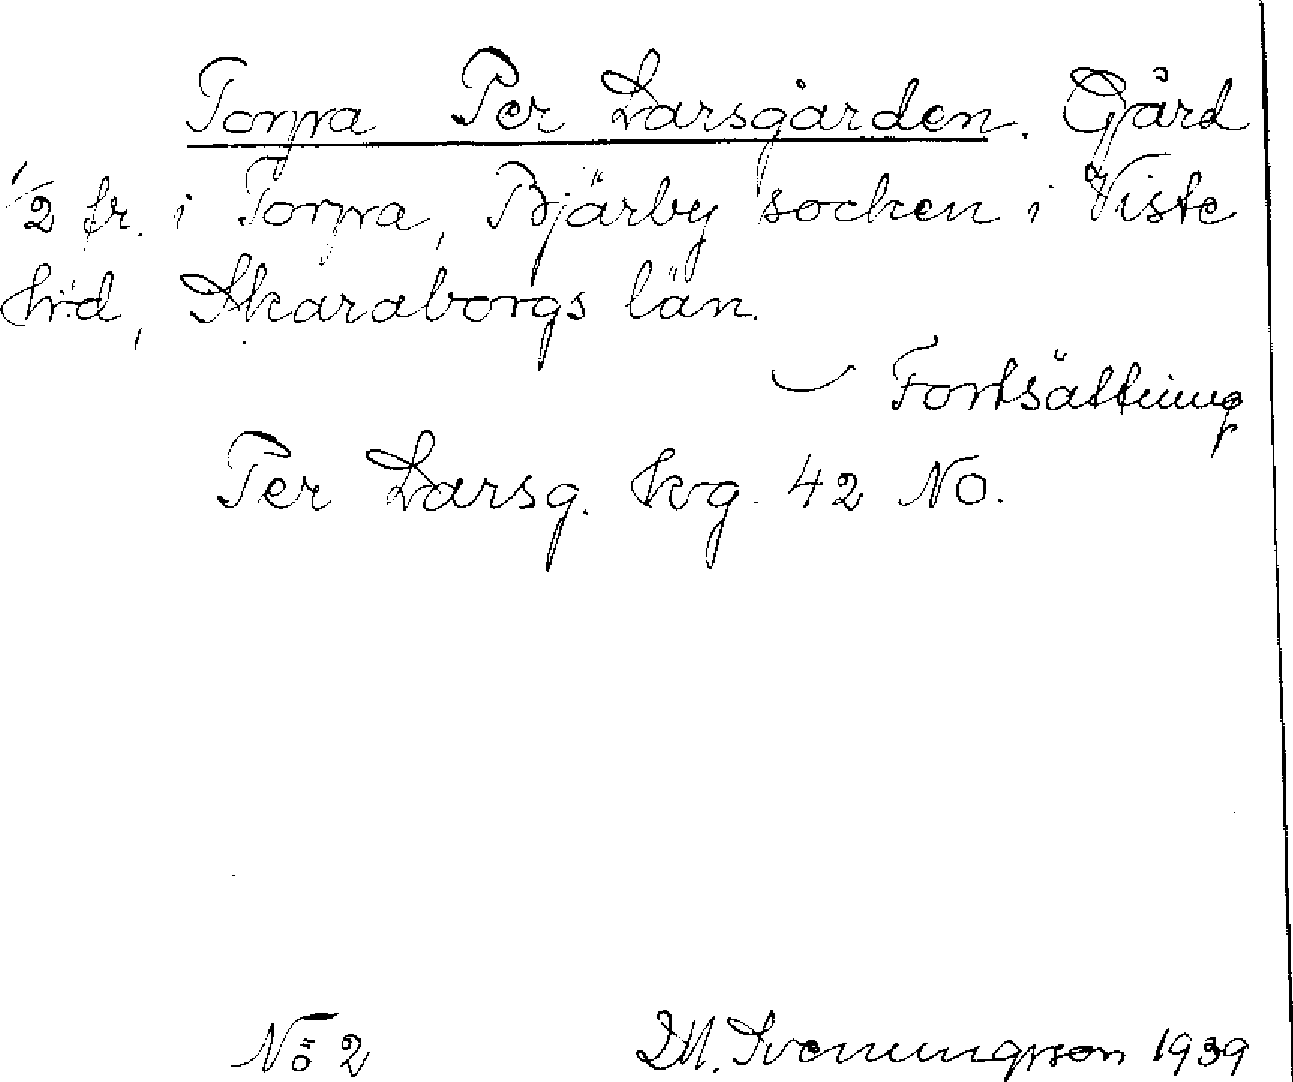 Torpa Per Larsgården. Gård
1/2 fr. i Torpa, Bjärby socken i Viste
hrd, Skaraborgs län.
Fortsättning
Per Larsg. kvg. 42 NO.
Nö 2
D.M. Svenungsson 1939